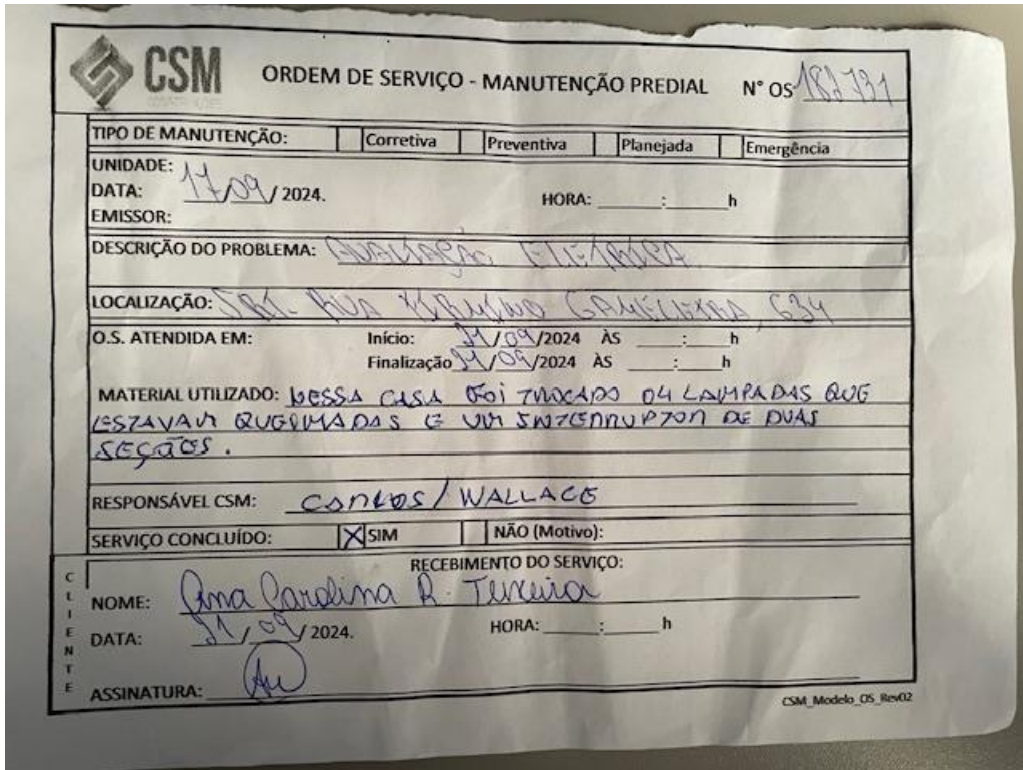 CSM
CONSTRUÇÕES
ORDEM DE SERVIÇO - MANUTENÇÃO PREDIAL
N° OS 182731
TIPO DE MANUTENÇÃO: Corretiva Preventiva Planejada Emergência
UNIDADE:
DATA: 17/09/2024.
HORA: ____:____h
EMISSOR:
DESCRIÇÃO DO PROBLEMA: AVALIAÇÃO ELÉTRICA
LOCALIZAÇÃO: RUA GAMELEIRA, 634
O.S. ATENDIDA EM: Início: 21/09/2024 ÀS ____:____h
Finalização 21/09/2024 ÀS ____:____h
MATERIAL UTILIZADO: NESSA CASA FOI TROCADO 04 LAMPADAS QUE
ESTAVAM QUEIMADAS E UM INTERRUPTOR DE DUAS
SEÇÕES.
RESPONSÁVEL CSM: CARLOS/WALLACE
SERVIÇO CONCLUÍDO: X SIM NÃO (Motivo):
CLIENTE
RECEBIMENTO DO SERVIÇO:
NOME: Ana Carolina R. Teixeira
DATA: 21/09/2024.
HORA: ____:____h
ASSINATURA:
CSM_Modelo_OS_Rev02